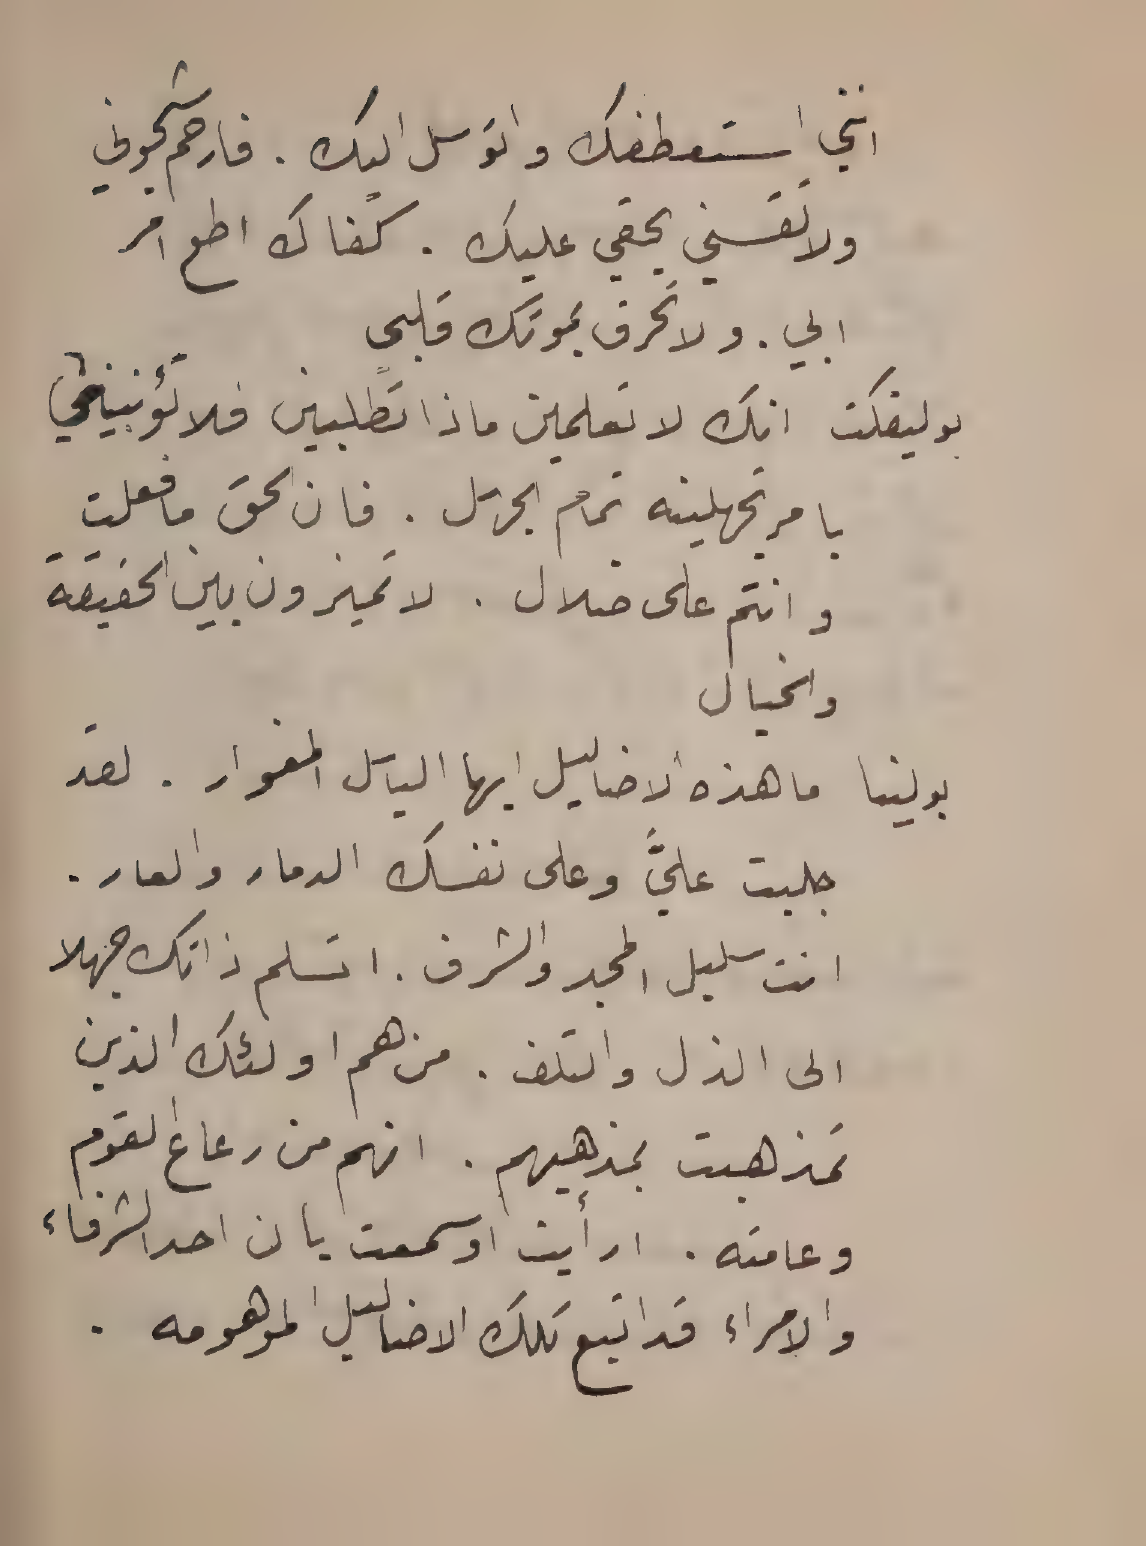 انني استعطفك واتوسل اليك . فارحم شجوني
ولا تقسني بحقي عليك . كفاك اطع امر
ابي . ولا تحرق بموتك قلبي
بوليفكت انك لا تعلمين ماذا تطلبين فلا تؤنبيني
بامر تجهلينه تمام الجهل . فان الحق ما فعلت
وانتم على ضلال . لا تميزون بين الحقيقة
والخيال
بولينا ما هذه الاضاليل ايها الباسل المغوار . لقد
جلبت عليَّ وعلى نفسك الدمار والعار .
انت سليل المجد والشرف . اتسلم ذاتك جهلا
الى الذل والتلف . من هم اولئك الذين
تمذهبت بمذهبهم . انهم من رعاع القوم
وعامته . ارأيت او سمعت بان احد الشرفاء
والامراء قد اتبع تلك الاضاليل الموهومه .